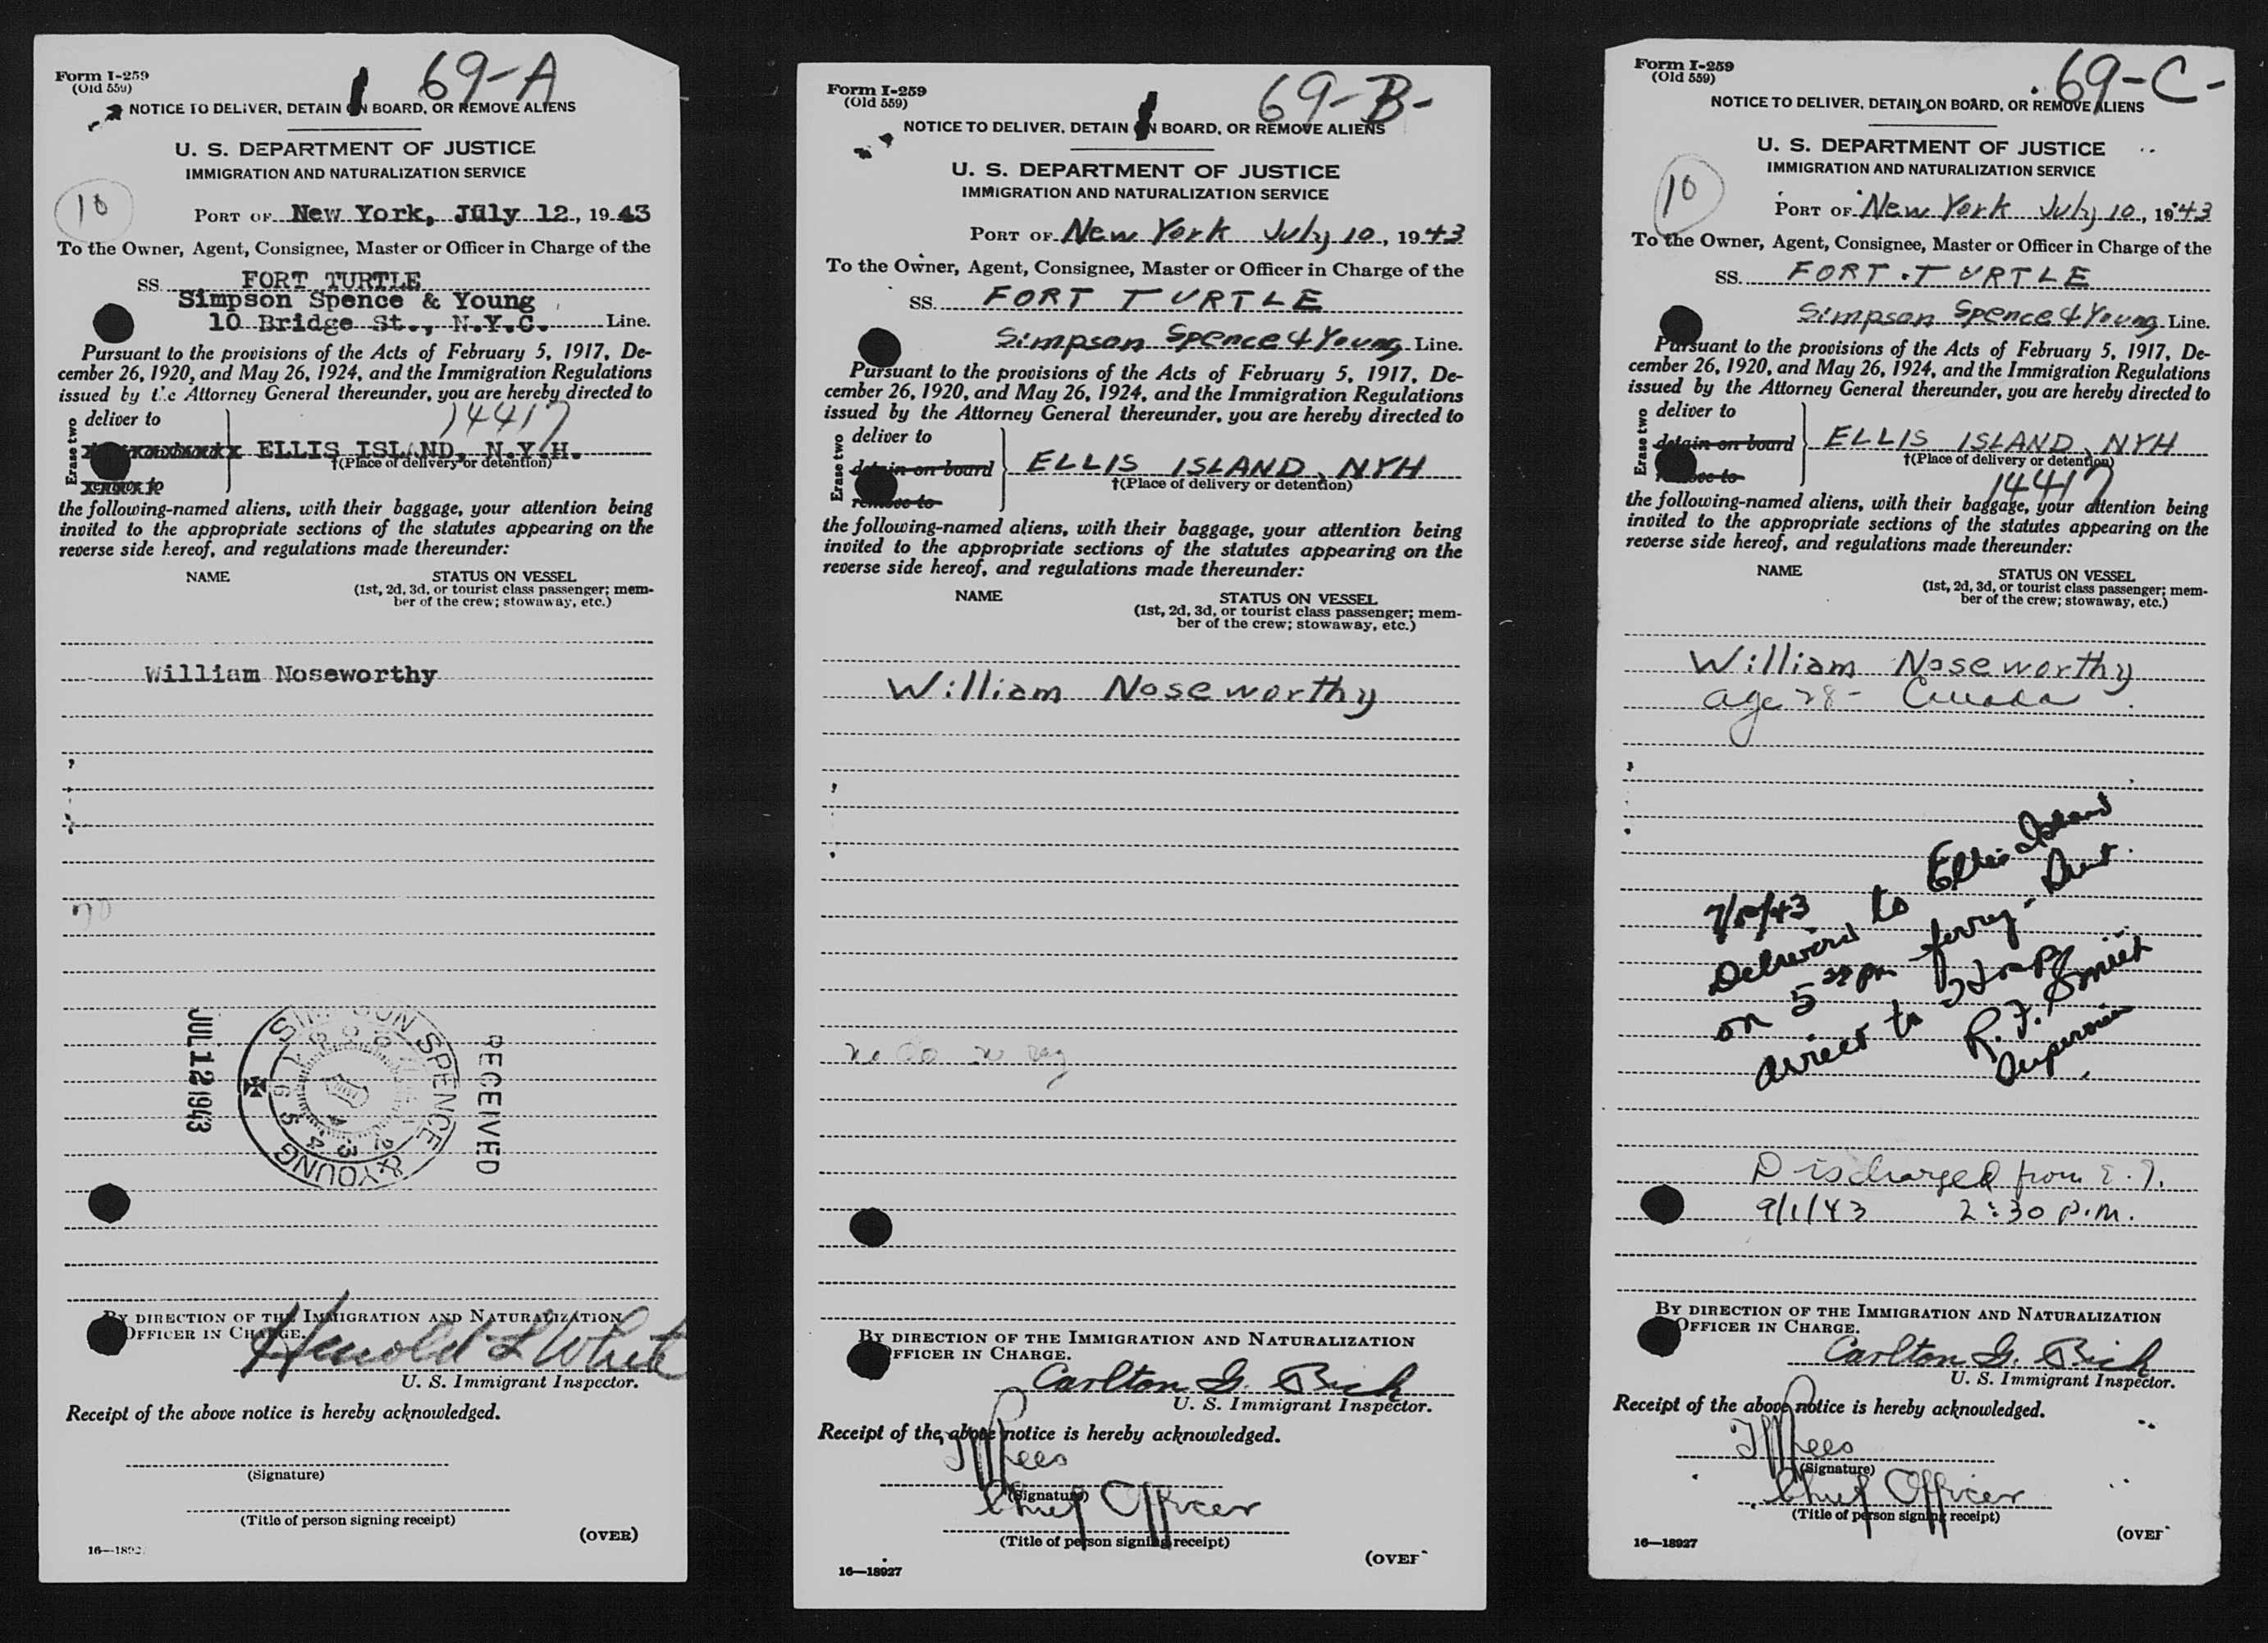 Form I-259
(Old 559)
69-A
NOTICE TO DELIVER, DETAIN ON BOARD, OR REMOVE ALIENS
U. S. DEPARTMENT OF JUSTICE
IMMIGRATION AND NATURALIZATION SERVICE
10
PORT OF New York, July 12, 1943
To the Owner, Agent, Consignee, Master or Officer in Charge of the
SS. FORT TURTLE
Simpson Spence & Young
10 Bridge St., N.Y.C. Line.
Pursuant to the provisions of the Acts of February 5, 1917, De-
cember 26, 1920, and May 26, 1924, and the Immigration Regulations
issued by the Attorney General thereunder, you are hereby directed to
14417
Erase two
deliver to
ELLIS ISLAND, N.Y.H.
†(Place of delivery or detention)
remove to
the following-named aliens, with their baggage, your attention being
invited to the appropriate sections of the statutes appearing on the
reverse side hereof, and regulations made thereunder:
NAME STATUS ON VESSEL
(1st, 2d, 3d, or tourist class passenger; mem-
ber of the crew; stowaway, etc.)
William Noseworthy
RECEIVED
SIMPSON SPENCE & YOUNG
JUL 12 1943
BY DIRECTION OF THE IMMIGRATION AND NATURALIZATION
OFFICER IN CHARGE.
Harold L White
U. S. Immigrant Inspector.
Receipt of the above notice is hereby acknowledged.
(Signature)
(Title of person signing receipt)
(OVER)
16—1892
Form I-259
(Old 559)
69-B-
NOTICE TO DELIVER, DETAIN ON BOARD, OR REMOVE ALIENS
U. S. DEPARTMENT OF JUSTICE
IMMIGRATION AND NATURALIZATION SERVICE
PORT OF New York July 10, 1943
To the Owner, Agent, Consignee, Master or Officer in Charge of the
SS. FORT TURTLE
Simpson Spence & Young Line.
Pursuant to the provisions of the Acts of February 5, 1917, De-
cember 26, 1920, and May 26, 1924, and the Immigration Regulations
issued by the Attorney General thereunder, you are hereby directed to
Erase two
deliver to
detain on board ELLIS ISLAND, NYH
†(Place of delivery or detention)
remove to
the following-named aliens, with their baggage, your attention being
invited to the appropriate sections of the statutes appearing on the
reverse side hereof, and regulations made thereunder:
NAME STATUS ON VESSEL
(1st, 2d, 3d, or tourist class passenger; mem-
ber of the crew; stowaway, etc.)
William Noseworthy
BY DIRECTION OF THE IMMIGRATION AND NATURALIZATION
OFFICER IN CHARGE.
Carlton G. Bich
U. S. Immigrant Inspector.
Receipt of the above notice is hereby acknowledged.
Rees
(Signature)
Chief Officer
(Title of person signing receipt)
(OVER
16—18927
Form I-259
(Old 559)
69-C-
NOTICE TO DELIVER, DETAIN ON BOARD, OR REMOVE ALIENS
U. S. DEPARTMENT OF JUSTICE
IMMIGRATION AND NATURALIZATION SERVICE
10
PORT OF New York July 10, 1943
To the Owner, Agent, Consignee, Master or Officer in Charge of the
SS. FORT TURTLE
Simpson Spence & Young Line.
Pursuant to the provisions of the Acts of February 5, 1917, De-
cember 26, 1920, and May 26, 1924, and the Immigration Regulations
issued by the Attorney General thereunder, you are hereby directed to
Erase two
deliver to
detain on board ELLIS ISLAND, NYH
†(Place of delivery or detention)
remove to
14417
the following-named aliens, with their baggage, your attention being
invited to the appropriate sections of the statutes appearing on the
reverse side hereof, and regulations made thereunder:
NAME STATUS ON VESSEL
(1st, 2d, 3d, or tourist class passenger; mem-
ber of the crew; stowaway, etc.)
William Noseworthy
age 28- Canada
7/10/43
Delivered to Ellis Island
on 5 pm ferry-
R. F. Smith
Supervisor
Discharged from E.I.
9/1/43 2:30 P.M.
BY DIRECTION OF THE IMMIGRATION AND NATURALIZATION
OFFICER IN CHARGE.
Carlton G. Bich
U. S. Immigrant Inspector.
Receipt of the above notice is hereby acknowledged.
Rees
(Signature)
Chief Officer
(Title of person signing receipt)
(OVER
16—18927